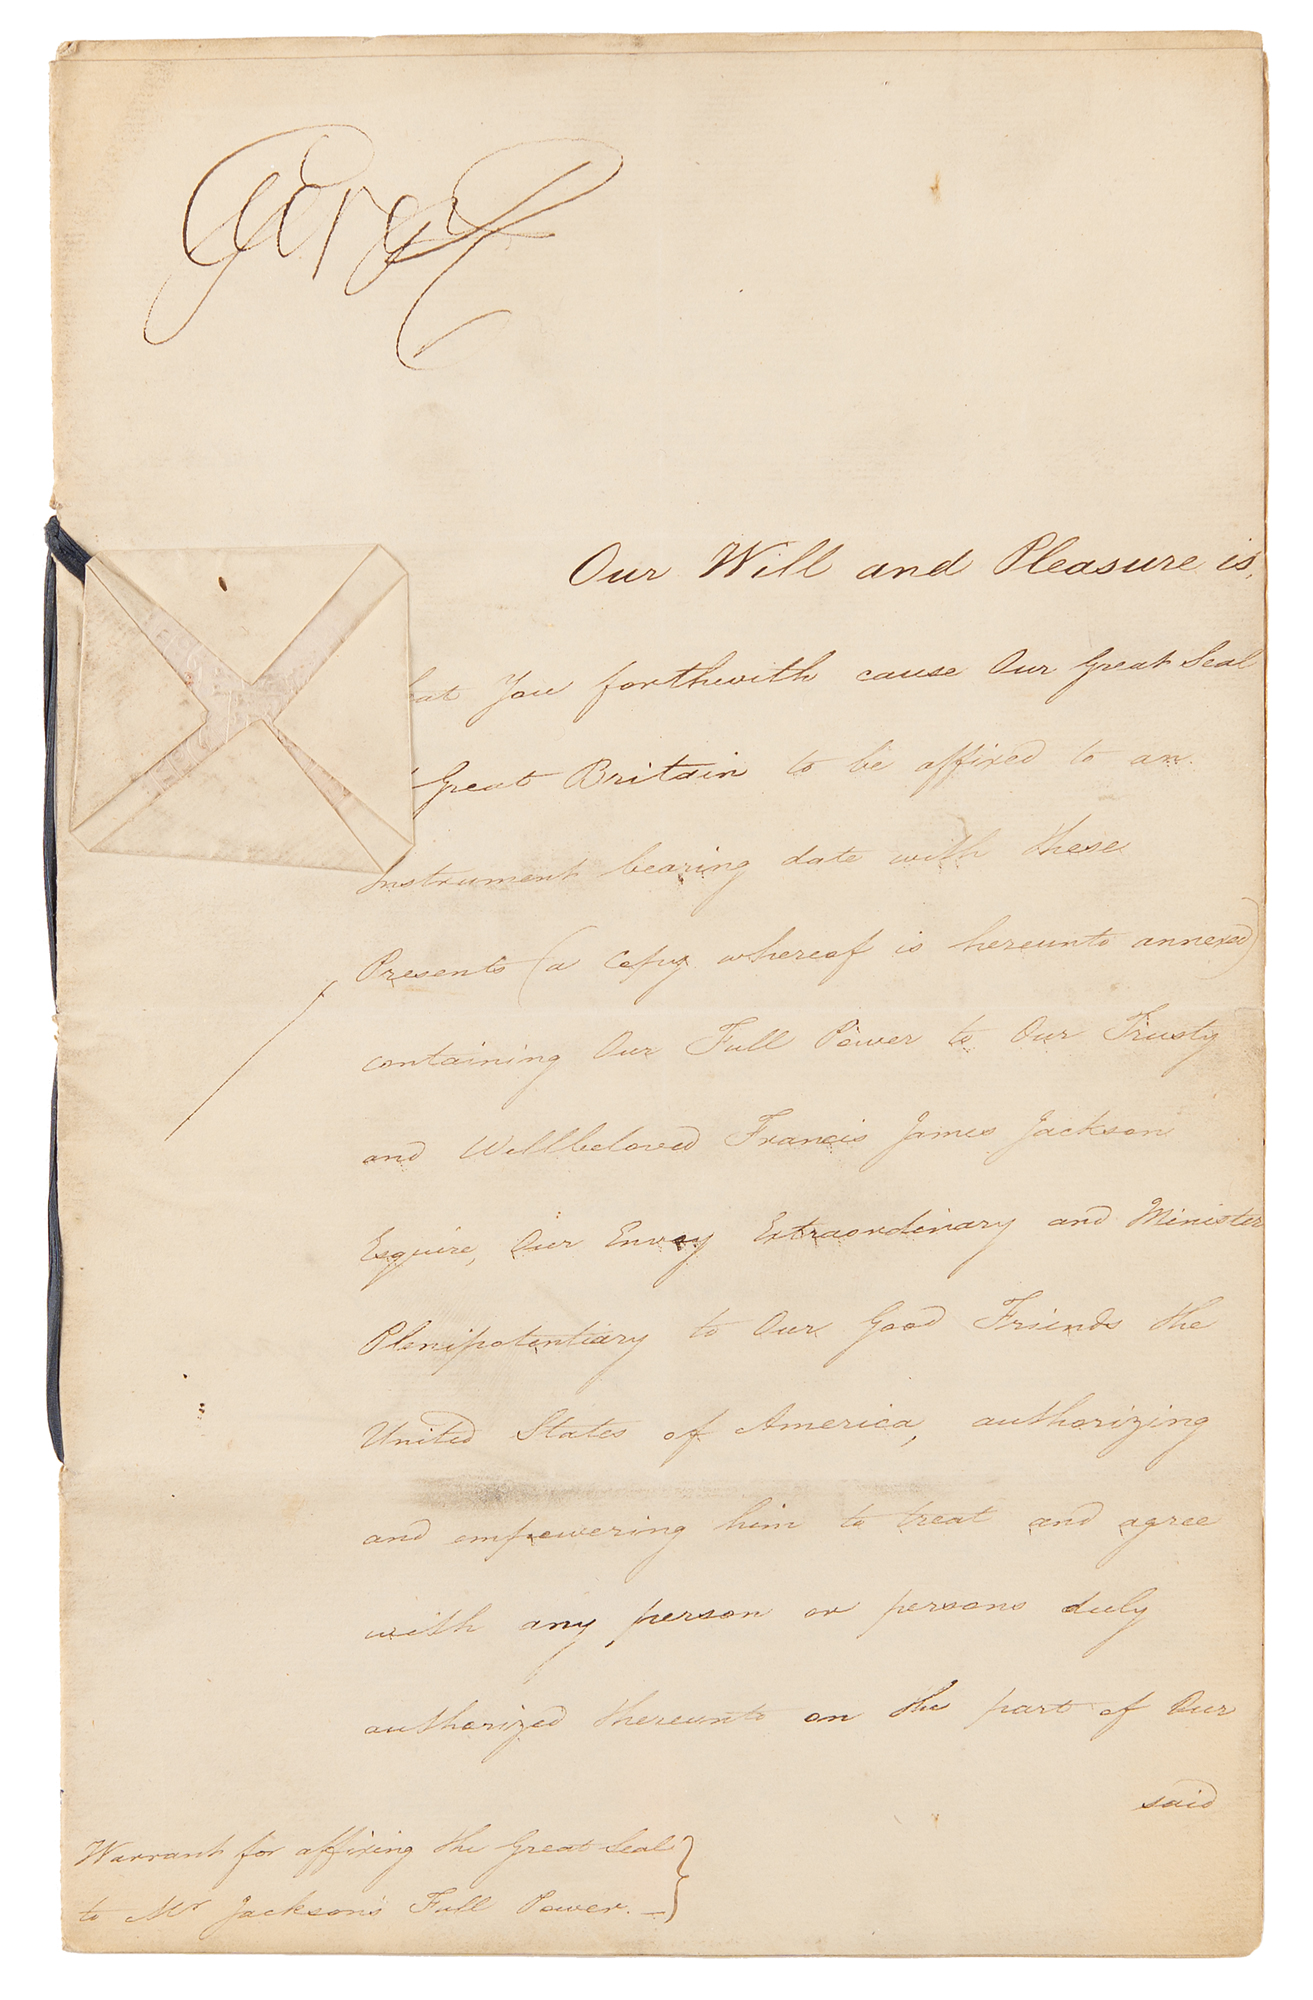 George R
Our Will and Pleasure is,
hat You forthwith cause Our Great Seal
Great Britain to be affixed to an
Instrument bearing date with these
Presents (a Copy whereof is hereunto annexed)
containing Our Full Power to Our Trusty
and Wellbeloved Francis James Jackson
Esquire, Our Envoy Extraordinary and Minister
Plenipotentiary to Our Good Friends the
United States of America, authorizing
and empowering him to treat and agree
with any person or persons duly
authorized thereunto on the part of Our
said
Warrant for affixing the Great Seal
to Mr Jackson's Full Power.